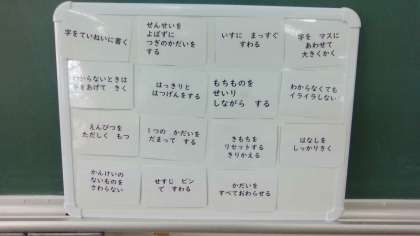 字をていねいに書く
せんせいを
よばずに
つぎのかだいを
する
いすに まっすぐ
すわる
字を マスに
あわせて
大きくかく
わからないときは
手をあげて きく
はっきりと
はつげんをする
もちものを
せいり
しながら する
わからなくても
イライラしない
えんぴつを
ただしく もつ
1つの かだいを
だまって する
きもちを
リセットする
きりかえる
はなしを
しっかりきく
かんけいの
ないものを
さわらない
せすじ ピン
で すわる
かだいを
すべておわらせる